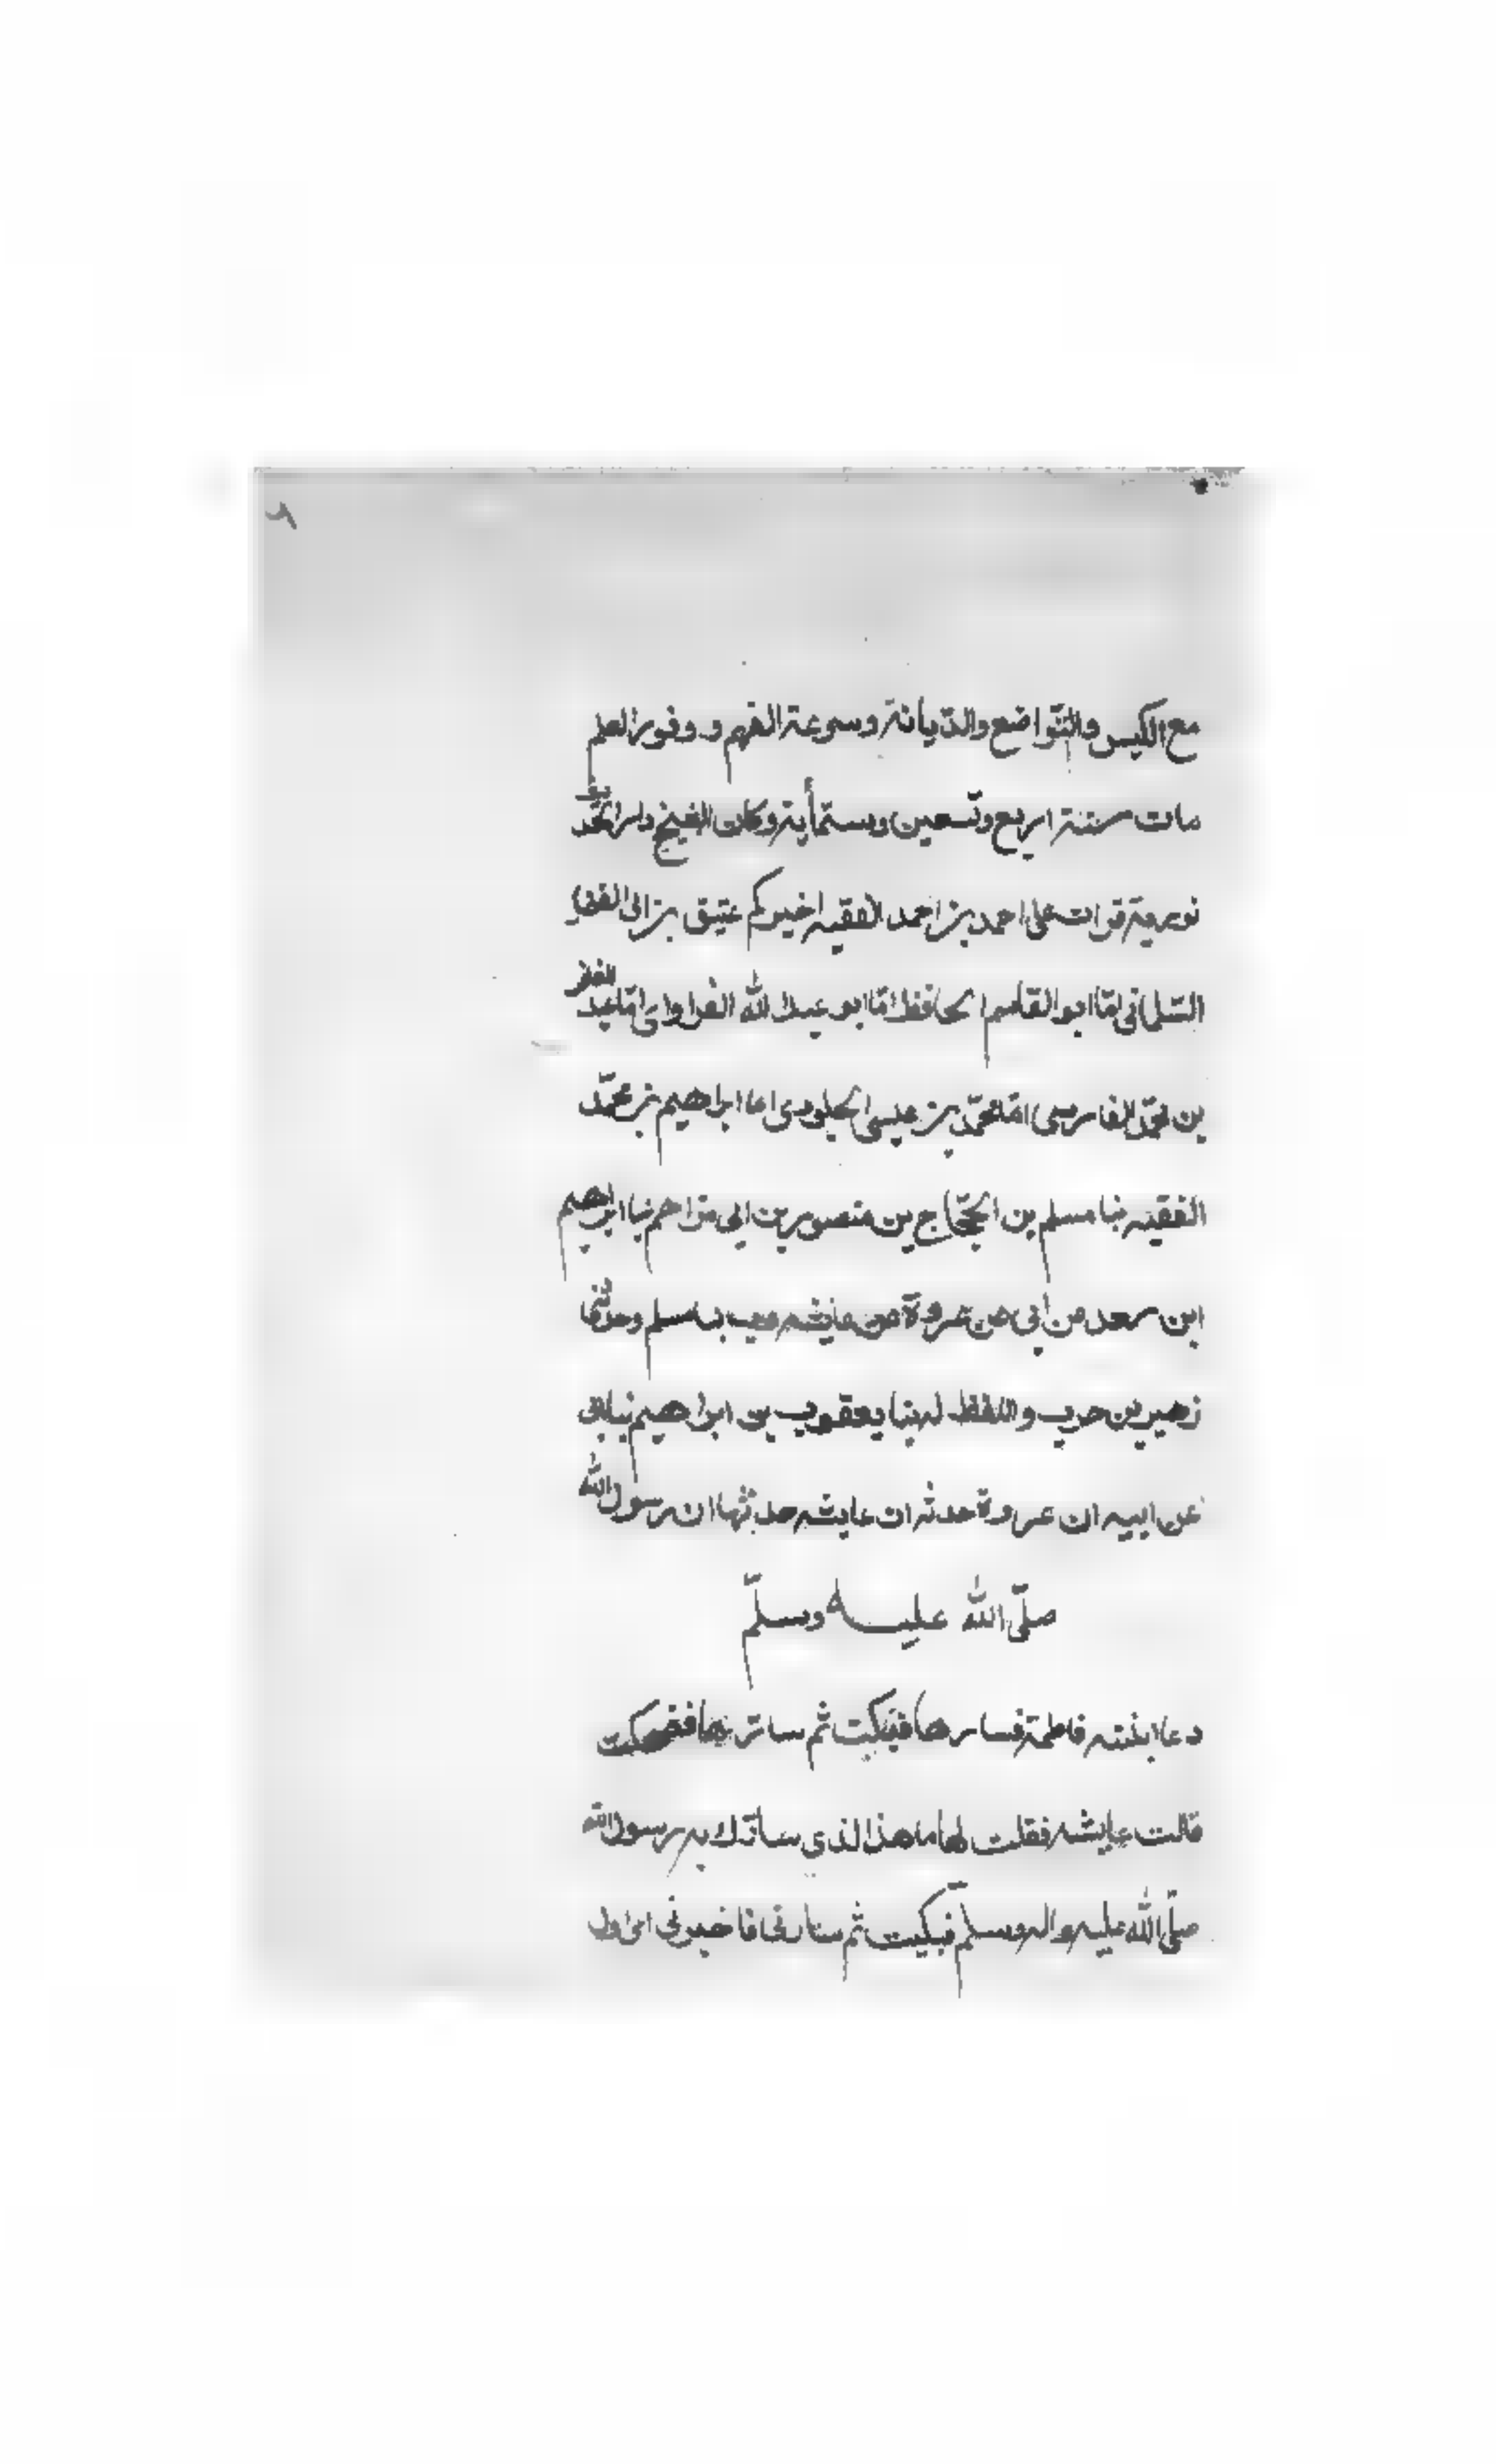 مع الكيس والتواضع والديانة وسرعة الفهم و وفور العلم
مات سنة اربع وتسعين وستمأية وكان الشيخ دار الحديث
نورية قرات على احمد بن احمد الفقيه اخبركم عتيق بن ابى الفضل
السلمانى انا ابو القاسم الحافظ انا ابو عبد الله الفراوى انا عبد الغافر
بن محمد الفارسى انا محمد بن عيسى الجلودى انا ابراهيم بن محمد
الفقيه نبا مسلم بن الحجاج بن منصور بن ابى مزاحم نبا ابراهيم
ابن سعد عن ابى عن عروة عن عايشه نبا مسلم وحدثنى
زهير بن حرب واللفظ له نبا يعقوب بن ابراهيم نبا ابى
عن ابيه ان عروة حدثه ان عايشه حدثتها ان رسول الله
صلّى الله عليه وسلّم
دعا ابنته فاطمة فسارها فبكت ثم سارها فضحكت
قالت عايشه فقلت لها ما هذا الذى سارك به رسول الله
صلّى الله عليه واله وسلّم فبكيت ثم سارنى فاخبرنى انى اول